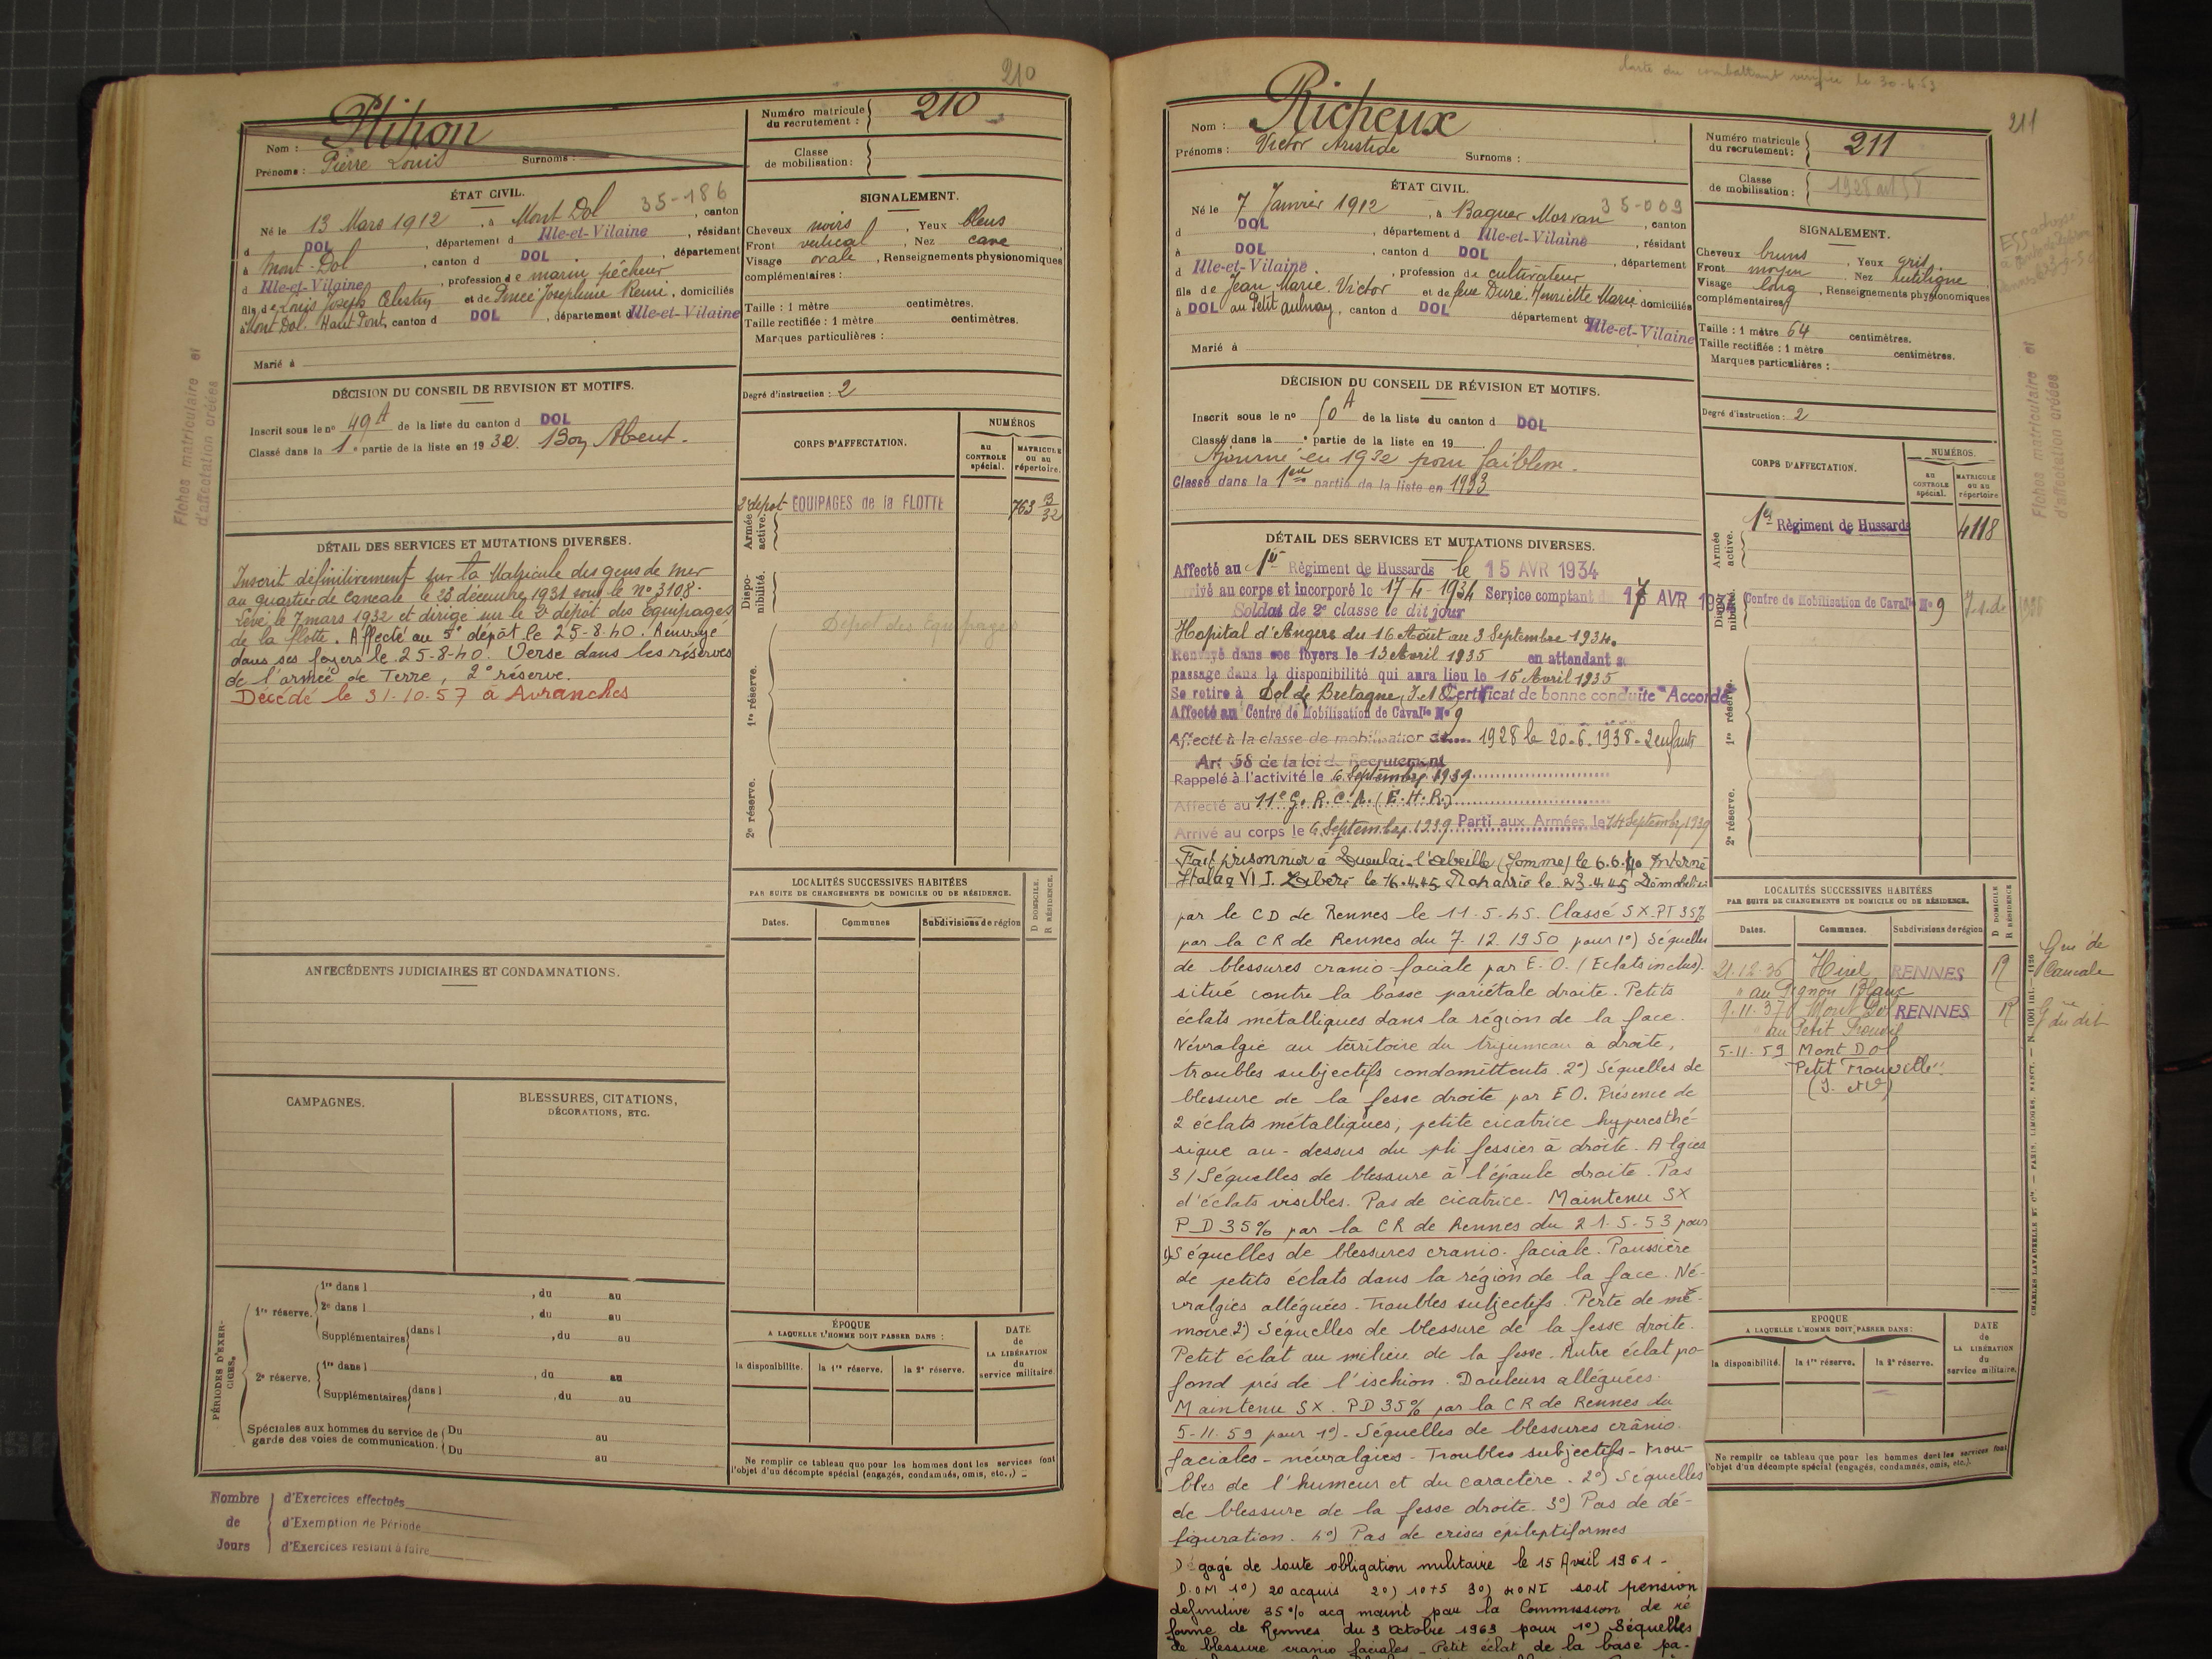 210
Plihon
Nom :
Prénoms : Pierre Louis Surnoms :
Numéro matricule du recrutement : 210
Classe de mobilisation :
ÉTAT CIVIL.
35-186
Né le 13 Mars 1912, à Mont Dol, canton
d DOL, département d Ille-et-Vilaine, résidant
à Mont-Dol, canton d DOL, département
d Ille-et-Vilaine, profession de marin pêcheur
fils de Louis Joseph Célestin et de Josephine Remi, domiciliés
à Mont Dol. Haut Pont, canton d DOL, département d Ille-et-Vilaine
Marié à
SIGNALEMENT.
Cheveux noirs, Yeux bleus
Front vertical, Nez cave
Visage ovale, Renseignements physionomiques
complémentaires :
Taille : 1 mètre centimètres.
Taille rectifiée : 1 mètre centimètres.
Marques particulières :
Degré d'instruction : 2
DÉCISION DU CONSEIL DE REVISION ET MOTIFS.
Inscrit sous le n° 49 A de la liste du canton d DOL
Classé dans la 1e partie de la liste en 1932. Bon Absent.
CORPS D'AFFECTATION.
NUMÉROS
au CONTROLE spécial.
MATRICULE ou au répertoire.
Armée active.
2e dépot EQUIPAGES de la FLOTTE 763 B/32
Disponibilité.
Dépot des Equipages
1re réserve.
2e réserve.
DÉTAIL DES SERVICES ET MUTATIONS DIVERSES.
Inscrit définitivement sur la Matricule des gens de mer
au quartier de Cancale le 23 décembre 1931 sous le n° 3108.
Levé le 7 mars 1932 et dirigé sur le 2e dépot des Equipages
de la flotte. Affecté au 5e dépôt le 25-8-40. Renvoyé
dans ses foyers le 25-8-40. Versé dans les réserves
de l'armée de Terre, 2e réserve.
Décédé le 31-10-57 à Avranches
Fiches matriculaire et
d'affectation créées
ANTÉCÉDENTS JUDICIAIRES ET CONDAMNATIONS.
CAMPAGNES.
BLESSURES, CITATIONS,
DÉCORATIONS, ETC.
LOCALITÉS SUCCESSIVES HABITÉES
PAR SUITE DE CHANGEMENTS DE DOMICILE OU DE RÉSIDENCE.
D DOMICILE.
R RÉSIDENCE.
Dates. Communes. Subdivisions de région
PÉRIODES D'EXERCICES.
1re réserve. 1re dans l , du au
2e dans l , du au
Supplémentaires dans l , du au
2e réserve. 1re dans l , du au
Supplémentaires dans l , du au
Spéciales aux hommes du service de garde des voies de communication. Du au
Du au
ÉPOQUE
A LAQUELLE L'HOMME DOIT PASSER DANS :
la disponibilité. la 1re réserve. la 2e réserve.
DATE de LA LIBÉRATION du service militaire.
Ne remplir ce tableau que pour les hommes dont les services font
l'objet d'un décompte spécial (engagés, condamnés, omis, etc.,)
Nombre de Jours
d'Exercices effectués
d'Exemption de Période
d'Exercices restant à faire
Carte du combattant vérifiée le 30-4-53
211
Nom : Richeux
Prénoms : Victor Aristide Surnoms :
Numéro matricule du recrutement : 211
Classe de mobilisation : 1928 art 58
ÉTAT CIVIL.
35-009
Né le 7 Janvier 1912, à Baguer Morvan, canton
d DOL, département d Ille-et-Vilaine, résidant
à DOL, canton d DOL, département
d Ille-et-Vilaine, profession de cultivateur
fils de Jean, Marie, Victor et de feue Duré, Henriette Marie domiciliés
à DOL au Petit Aulnay, canton d DOL département d Ille-et-Vilaine
Marié à
SIGNALEMENT.
Cheveux bruns, Yeux gris
Front moyen, Nez rectiligne
Visage long, Renseignements physionomiques
complémentaires
Taille : 1 mètre 64 centimètres.
Taille rectifiée : 1 mètre centimètres.
Marques particulières :
Degré d'instruction : 2
DÉCISION DU CONSEIL DE RÉVISION ET MOTIFS.
Inscrit sous le n° 50 A de la liste du canton d DOL
Classé dans la e partie de la liste en 19
Ajourné en 1932 pour faiblesse.
Classé dans la 1ère partie de la liste en 1933
CORPS D'AFFECTATION.
NUMÉROS.
au CONTROLE spécial.
MATRICULE ou au répertoire
Armée active.
1er Régiment de Hussards 4118
Disponibilité.
Centre de Mobilisation de Cavalie N° 9
1re réserve.
2e réserve.
Fiches matriculaire et
d'affectation créées
DÉTAIL DES SERVICES ET MUTATIONS DIVERSES.
Affecté au 1er Régiment de Hussards le 15 AVR 1934
Arrivé au corps et incorporé le 17-4-1934 Service comptant du 15 AVR 1934
Soldat de 2e classe le dit jour
Hopital d'Angers du 16 Août au 3 Septembre 1934.
Renvoyé dans ses foyers le 13 Avril 1935 en attendant s
passage dans la disponibilité qui aura lieu le 15 Avril 1935
Se retire à Dol de Bretagne, I.et V Certificat de bonne conduite "Accordé"
Affecté au Centre de Mobilisation de Cavalie N° 9
Affecté à la classe de mobilisation de 1928 le 20-6-1938 - 2 enfants
Art 58 de la loi de Recrutement
Rappelé à l'activité le 6 Septembre 1939
Affecté au 11e G.R.C.A. (E.H.R.)
Arrivé au corps le 6 Septembre 1939 Parti aux Armées le 14 Septembre 1939
Fait prisonnier à l'Abeille (Somme) le 6.6.40 Interné
Stalag VI J. Libéré le 16.4.45 Rapatrié le 23.4.45 Démobilisé
par le CD de Rennes le 11-5-45. Classé SX-PT 35%
par la CR de Rennes du 7.12.1950 pour 1°) Séquelles
de blessures cranio faciale par E.O. (Eclats inclus).
situé contre la basse pariétale droite. Petits
éclats métalliques dans la région de la face.
Névralgie au territoire du trijumeau a droite,
troubles subjectifs condomittents. 2°) Séquelles de
blessure de la fesse droite par EO. Présence de
2 éclats métalliques, petite cicatrice hyperesthé-
sique au-dessus du pli fessier à droite. Algies
3/ Séquelles de blessure à l'épaule droite. Pas
d'éclats visibles. Pas de cicatrice. Maintenu SX
PD 35% par la CR de Rennes du 21-5-53 pour
1) Séquelles de blessures cranio-faciale. Poussière
de petits éclats dans la région de la face. Né-
vralgies alléguées. Troubles subjectifs. Perte de mé-
moire. 2°) Séquelles de blessure de la fesse droite.
Petit éclat au milieu de la fesse. Autre éclat po-
fond près de l'ischion. Douleurs alléguées.
Maintenu SX. PD 35% par la CR de Rennes du
5-11-59 pour 1°) - Séquelles de blessures crânio.
faciales - névralgies - Troubles subjectifs - trou-
bles de l'humeur et du caractère. 2°) Séquelles
de blessure de la fesse droite. 3°) Pas de dé-
figuration. 4°) Pas de crises épileptiformes
Dégagé de toute obligation militaire le 15 Avril 1961 -
D.OM 1°) 20 acquis 2°) 10+5 3°) soit pension
définitive 35% acq maint par la Commission de ré
forme de Rennes du 3 octobre 1963 pour 1°) Séquelles
de blessure cranio faciales - Petit éclat de la base pa-
LOCALITÉS SUCCESSIVES HABITÉES
PAR SUITE DE CHANGEMENTS DE DOMICILE OU DE RÉSIDENCE.
D DOMICILE
R RÉSIDENCE
Dates. Communes. Subdivisions de région
21.12.36 Hirel RENNES R Gie de Cancale
" au Pignon Blanc
9.11.37 Mont Dol RENNES R Gie du dit
au Petit
5-11-59 Mont Dol
Petit Trouville"
(I. et V)
EPOQUE
A LAQUELLE L'HOMME DOIT PASSER DANS :
la disponibilité. la 1re réserve. la 2e réserve.
DATE de LA LIBÉRATION du service militaire.
Ne remplir ce tableau que pour les hommes dont les services font
l'objet d'un décompte spécial (engagés, condamnés, omis, etc.).
CHARLES LAVAUZELLE ET Cie. — PARIS, LIMOGES, NANCY. — N. 1001 int.